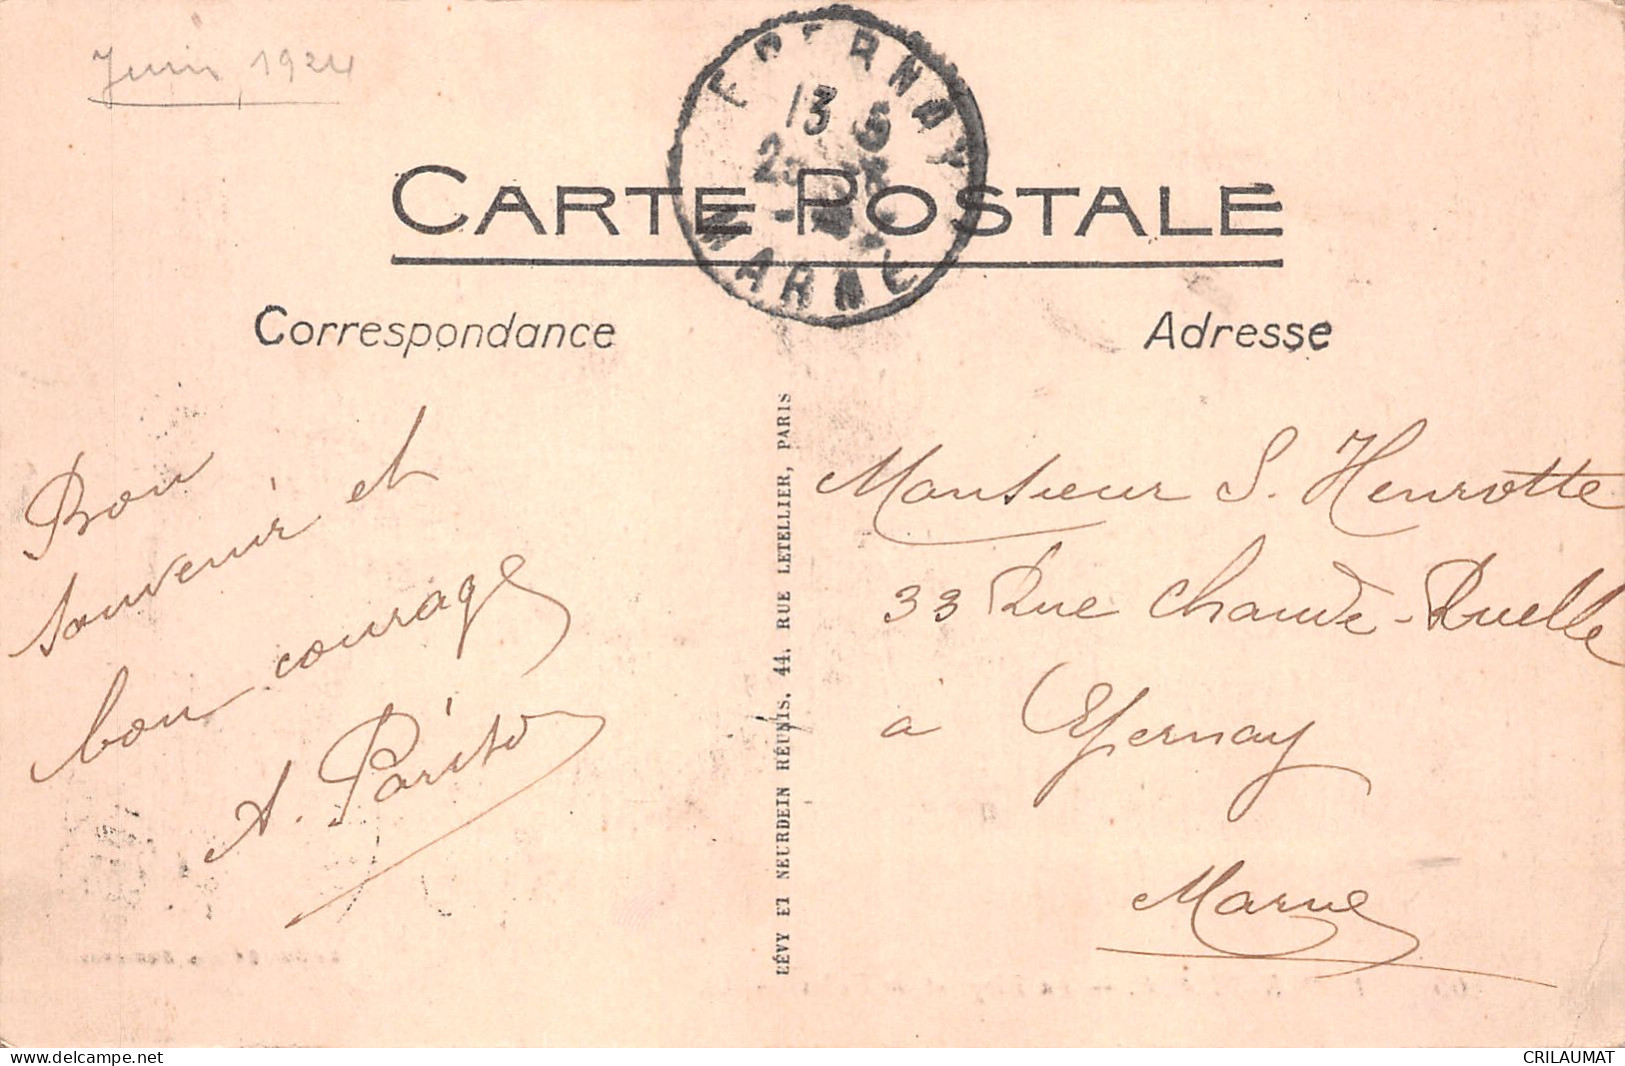 Juin 1924
EPERNAY
13 5
MARNE
CARTE POSTALE
Correspondance
Adresse
Bon
souvenir et
bon courage
A. Pariso
LÉVY ET NEURDEIN RÉUNIS, 44, RUE LETELLIER, PARIS
Monsieur S. Henrotte
33 Rue Chaude-Ruelle
à Epernay
Marne
www.delcampe.net
CRILAUMAT